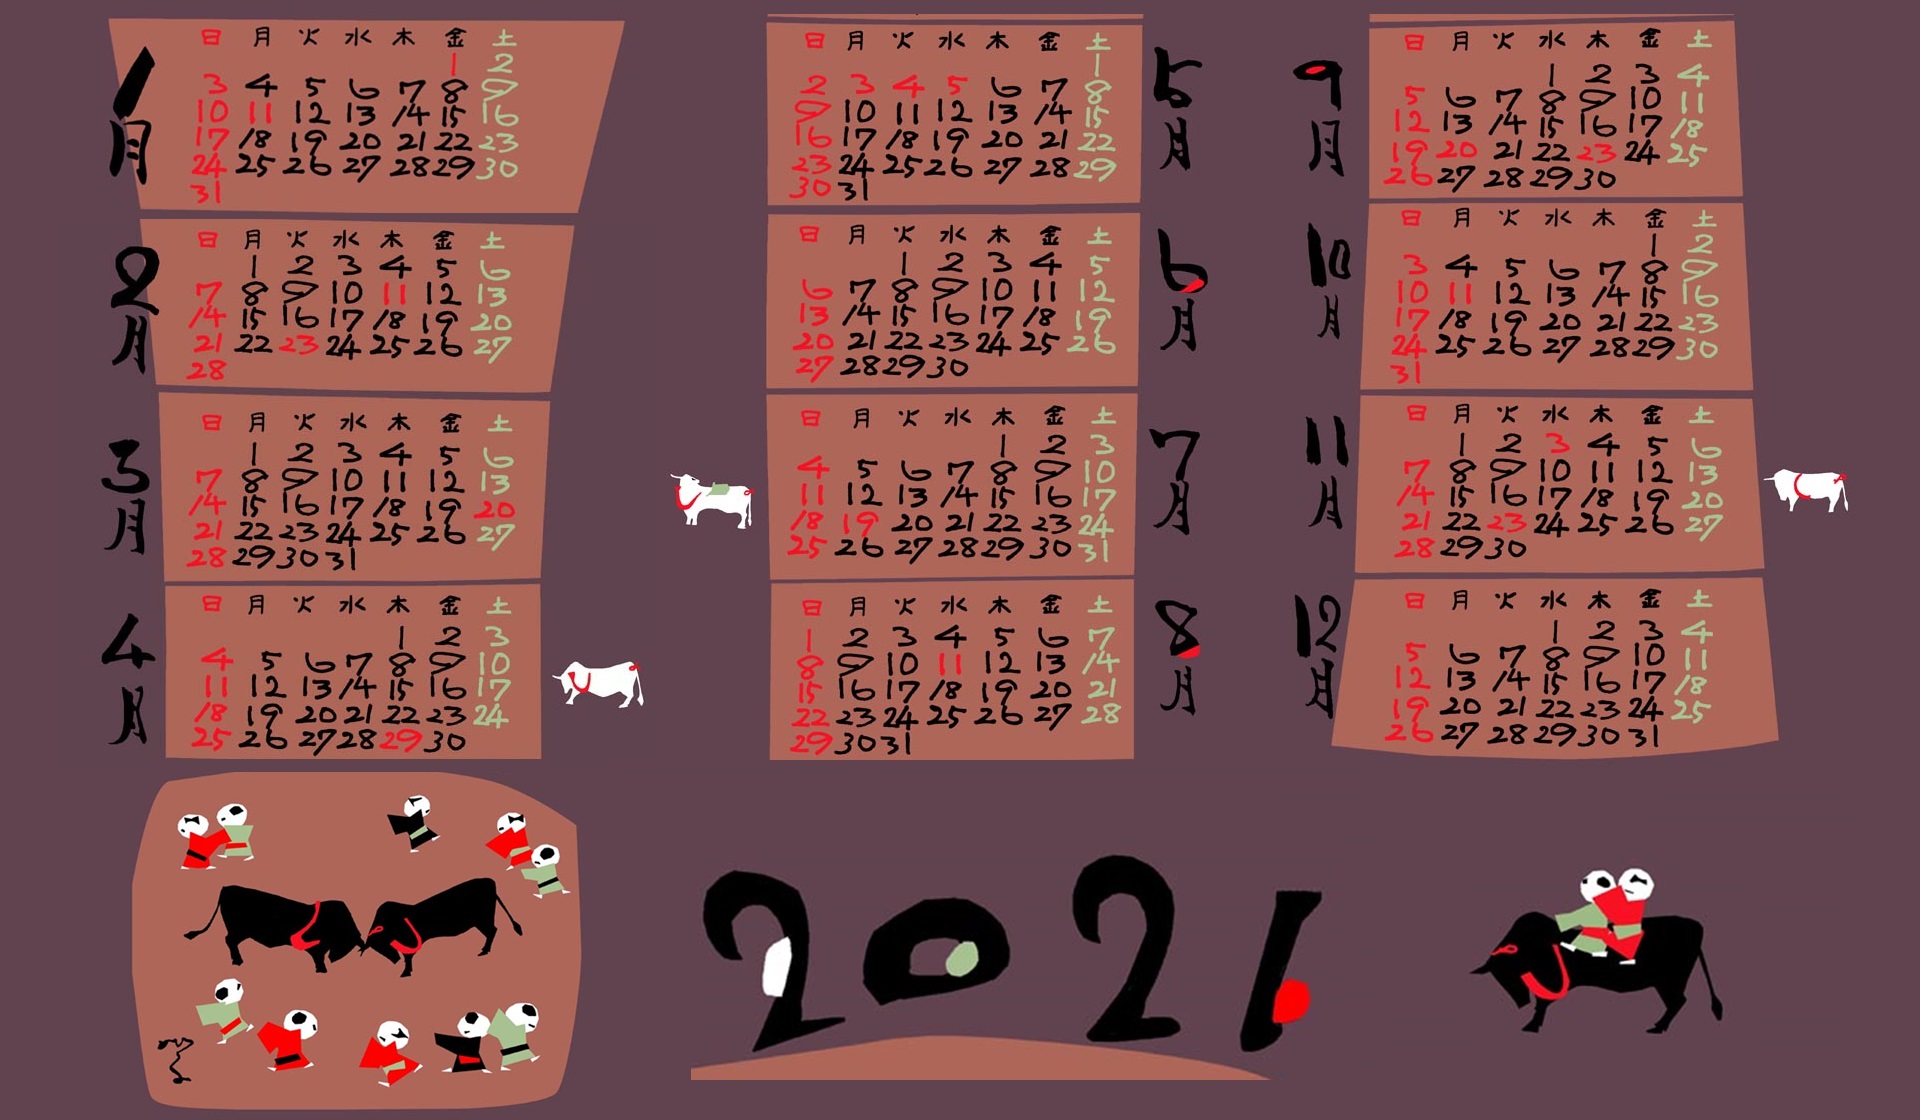 1月
日 月 火 水 木 金 土
1 2
3 4 5 6 7 8 9
10 11 12 13 14 15 16
17 18 19 20 21 22 23
24 25 26 27 28 29 30
31
2月
日 月 火 水 木 金 土
1 2 3 4 5 6
7 8 9 10 11 12 13
14 15 16 17 18 19 20
21 22 23 24 25 26 27
28
3月
日 月 火 水 木 金 土
1 2 3 4 5 6
7 8 9 10 11 12 13
14 15 16 17 18 19 20
21 22 23 24 25 26 27
28 29 30 31
4月
日 月 火 水 木 金 土
1 2 3
4 5 6 7 8 9 10
11 12 13 14 15 16 17
18 19 20 21 22 23 24
25 26 27 28 29 30
5月
日 月 火 水 木 金 土
1
2 3 4 5 6 7 8
9 10 11 12 13 14 15
16 17 18 19 20 21 22
23 24 25 26 27 28 29
30 31
6月
日 月 火 水 木 金 土
1 2 3 4 5
6 7 8 9 10 11 12
13 14 15 16 17 18 19
20 21 22 23 24 25 26
27 28 29 30
7月
日 月 火 水 木 金 土
1 2 3
4 5 6 7 8 9 10
11 12 13 14 15 16 17
18 19 20 21 22 23 24
25 26 27 28 29 30 31
8月
日 月 火 水 木 金 土
1 2 3 4 5 6 7
8 9 10 11 12 13 14
15 16 17 18 19 20 21
22 23 24 25 26 27 28
29 30 31
9月
日 月 火 水 木 金 土
1 2 3 4
5 6 7 8 9 10 11
12 13 14 15 16 17 18
19 20 21 22 23 24 25
26 27 28 29 30
10月
日 月 火 水 木 金 土
1 2
3 4 5 6 7 8 9
10 11 12 13 14 15 16
17 18 19 20 21 22 23
24 25 26 27 28 29 30
31
11月
日 月 火 水 木 金 土
1 2 3 4 5 6
7 8 9 10 11 12 13
14 15 16 17 18 19 20
21 22 23 24 25 26 27
28 29 30
12月
日 月 火 水 木 金 土
1 2 3 4
5 6 7 8 9 10 11
12 13 14 15 16 17 18
19 20 21 22 23 24 25
26 27 28 29 30 31
2021